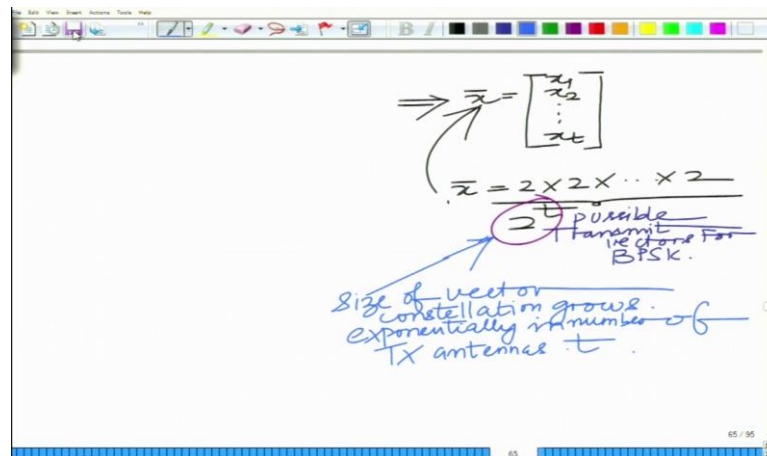 File Edit View Insert Actions Tools Help
B I
⟹ x̄ = [x₁
x₂
⋮
x_t]
x̄ = 2 × 2 × ·· × 2
2^t possible
Transmit
vectors for
BPSK.
Size of vector
constellation grows.
exponentially in number of
TX antennas t.
65 / 95
65